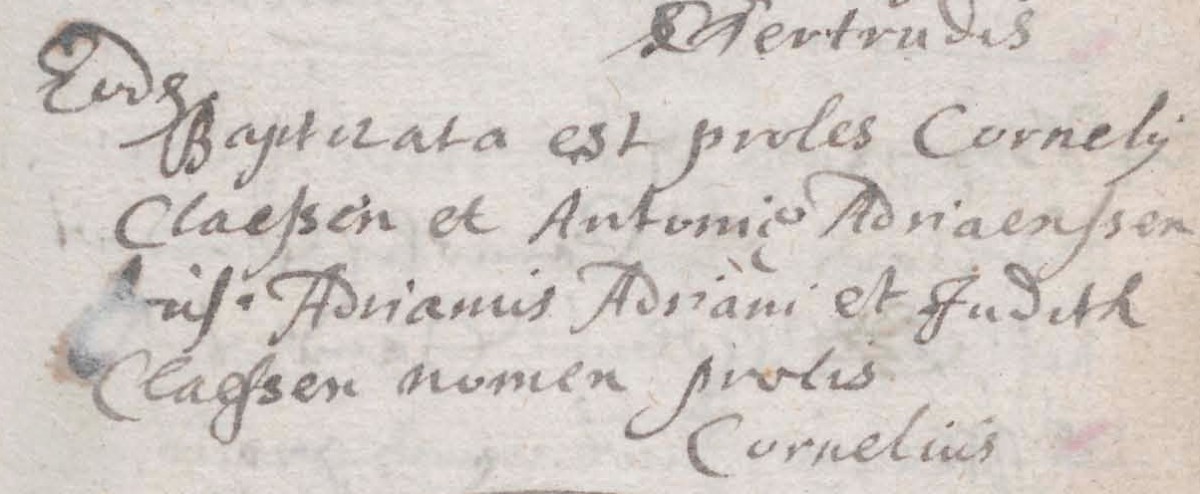 Gertrudis
Eode
Baptizata est proles Cornelÿ
Claessen et Antoniæ Adriaenssen
sus. Adrianus Adriani et Judith
Claessen nomen prolis
Cornelius